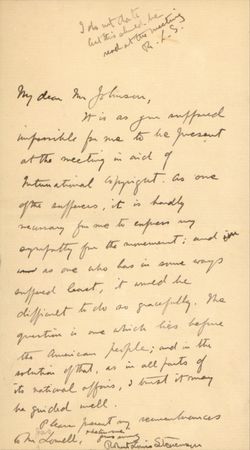 I do not date
but this should be
read at the meeting
R. L. S.
My dear Mr Johnson,
It is as you supposed
impossible for me to be present
at the meeting in aid of
International Copyright. As one
of the sufferers, it is hardly
necessary for me to express my
sympathy for the movement; and
as one who has in some ways
suffered least, it would be
difficult to do so gracefully. The
question is one which lies before
the American people; and in the
solution of that, as in all parts
of its national affairs, I trust it may
be guided well.
Please present my remembrances
to Mr Lowell,
Robert Louis Stevenson